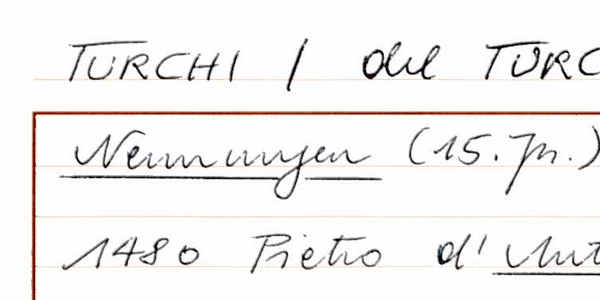 TURCHI / del TURC
Nennungen (15. Jh.)
1480 Pietro d'Ant